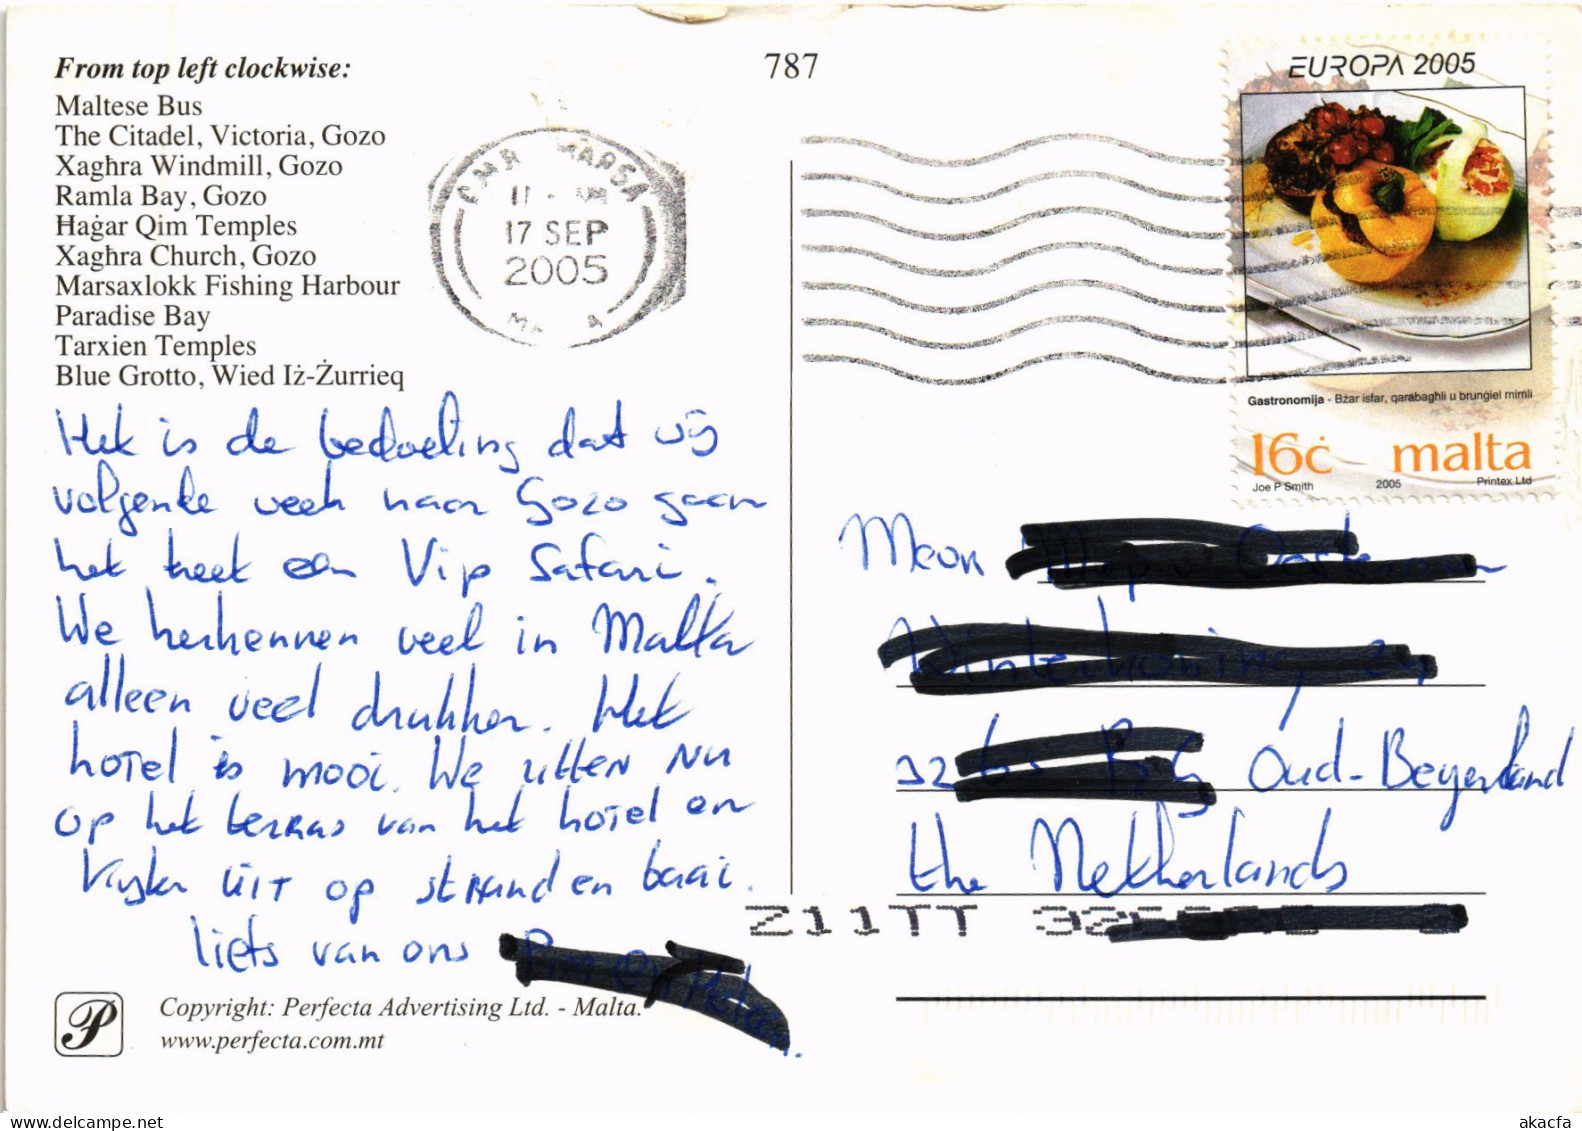 From top left clockwise:
Maltese Bus
The Citadel, Victoria, Gozo
Xagħra Windmill, Gozo
Ramla Bay, Gozo
Ħaġar Qim Temples
Xagħra Church, Gozo
Marsaxlokk Fishing Harbour
Paradise Bay
Tarxien Temples
Blue Grotto, Wied Iż-Żurrieq
787
MARSA
17 SEP
2005
EUROPA 2005
Gastronomija - Bżar isfar, qarabagħli u brunġiel mimli
16ċ malta
Joe P Smith 2005 Printex Ltd
Het is de bedoeling dat wij
volgende week naar Gozo gaan
het heet een Vip Safari.
We herkennen veel in Malta
alleen veel drukker. Het
hotel is mooi. We zitten nu
op het terras van het hotel en
kijken uit op strand en baai.
liefs van ons
Oud-Beyerland
the Netherlands
Z11TT
Copyright: Perfecta Advertising Ltd. - Malta.
www.perfecta.com.mt
akacfa